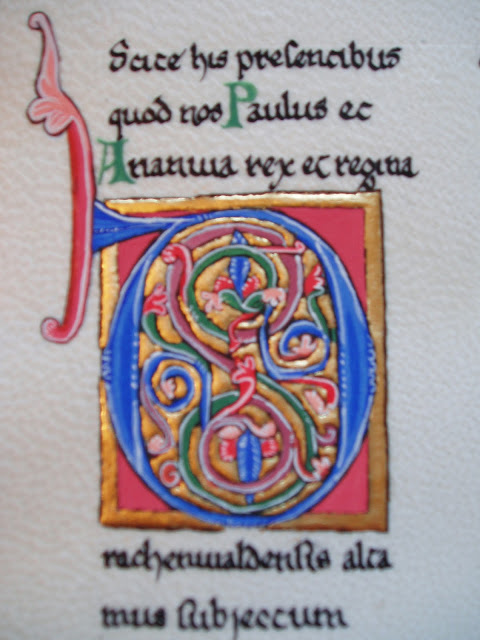 Scite his presentibus
quod nos Paulus et
Arianwa rex et regina
D
rachenwaldensis alta
mus subjectum